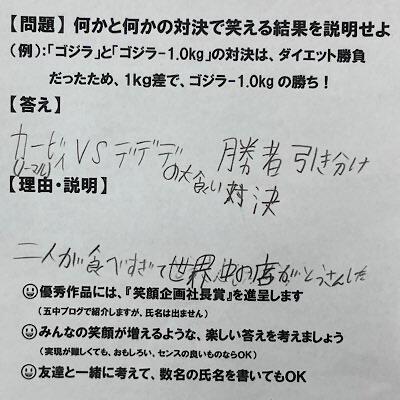 【問題】何かと何かの対決で笑える結果を説明せよ
(例):「ゴジラ」と「ゴジラ-1.0kg」の対決は、ダイエット勝負
だったため、1kg差で、ゴジラ-1.0kg の勝ち!
【答え】
カービィ VS デデデ の大食い対決 勝者 引き分け
(ノーマル)
【理由・説明】
二人が食べすぎて世界中の店がとうさんした
優秀作品には、『笑顔企画社長賞』を進呈します
(五中ブログで紹介しますが、氏名は出ません)
みんなの笑顔が増えるような、楽しい答えを考えましょう
(実現が難しくても、おもしろい、センスの良いものならOK)
友達と一緒に考えて、数名の氏名を書いてもOK